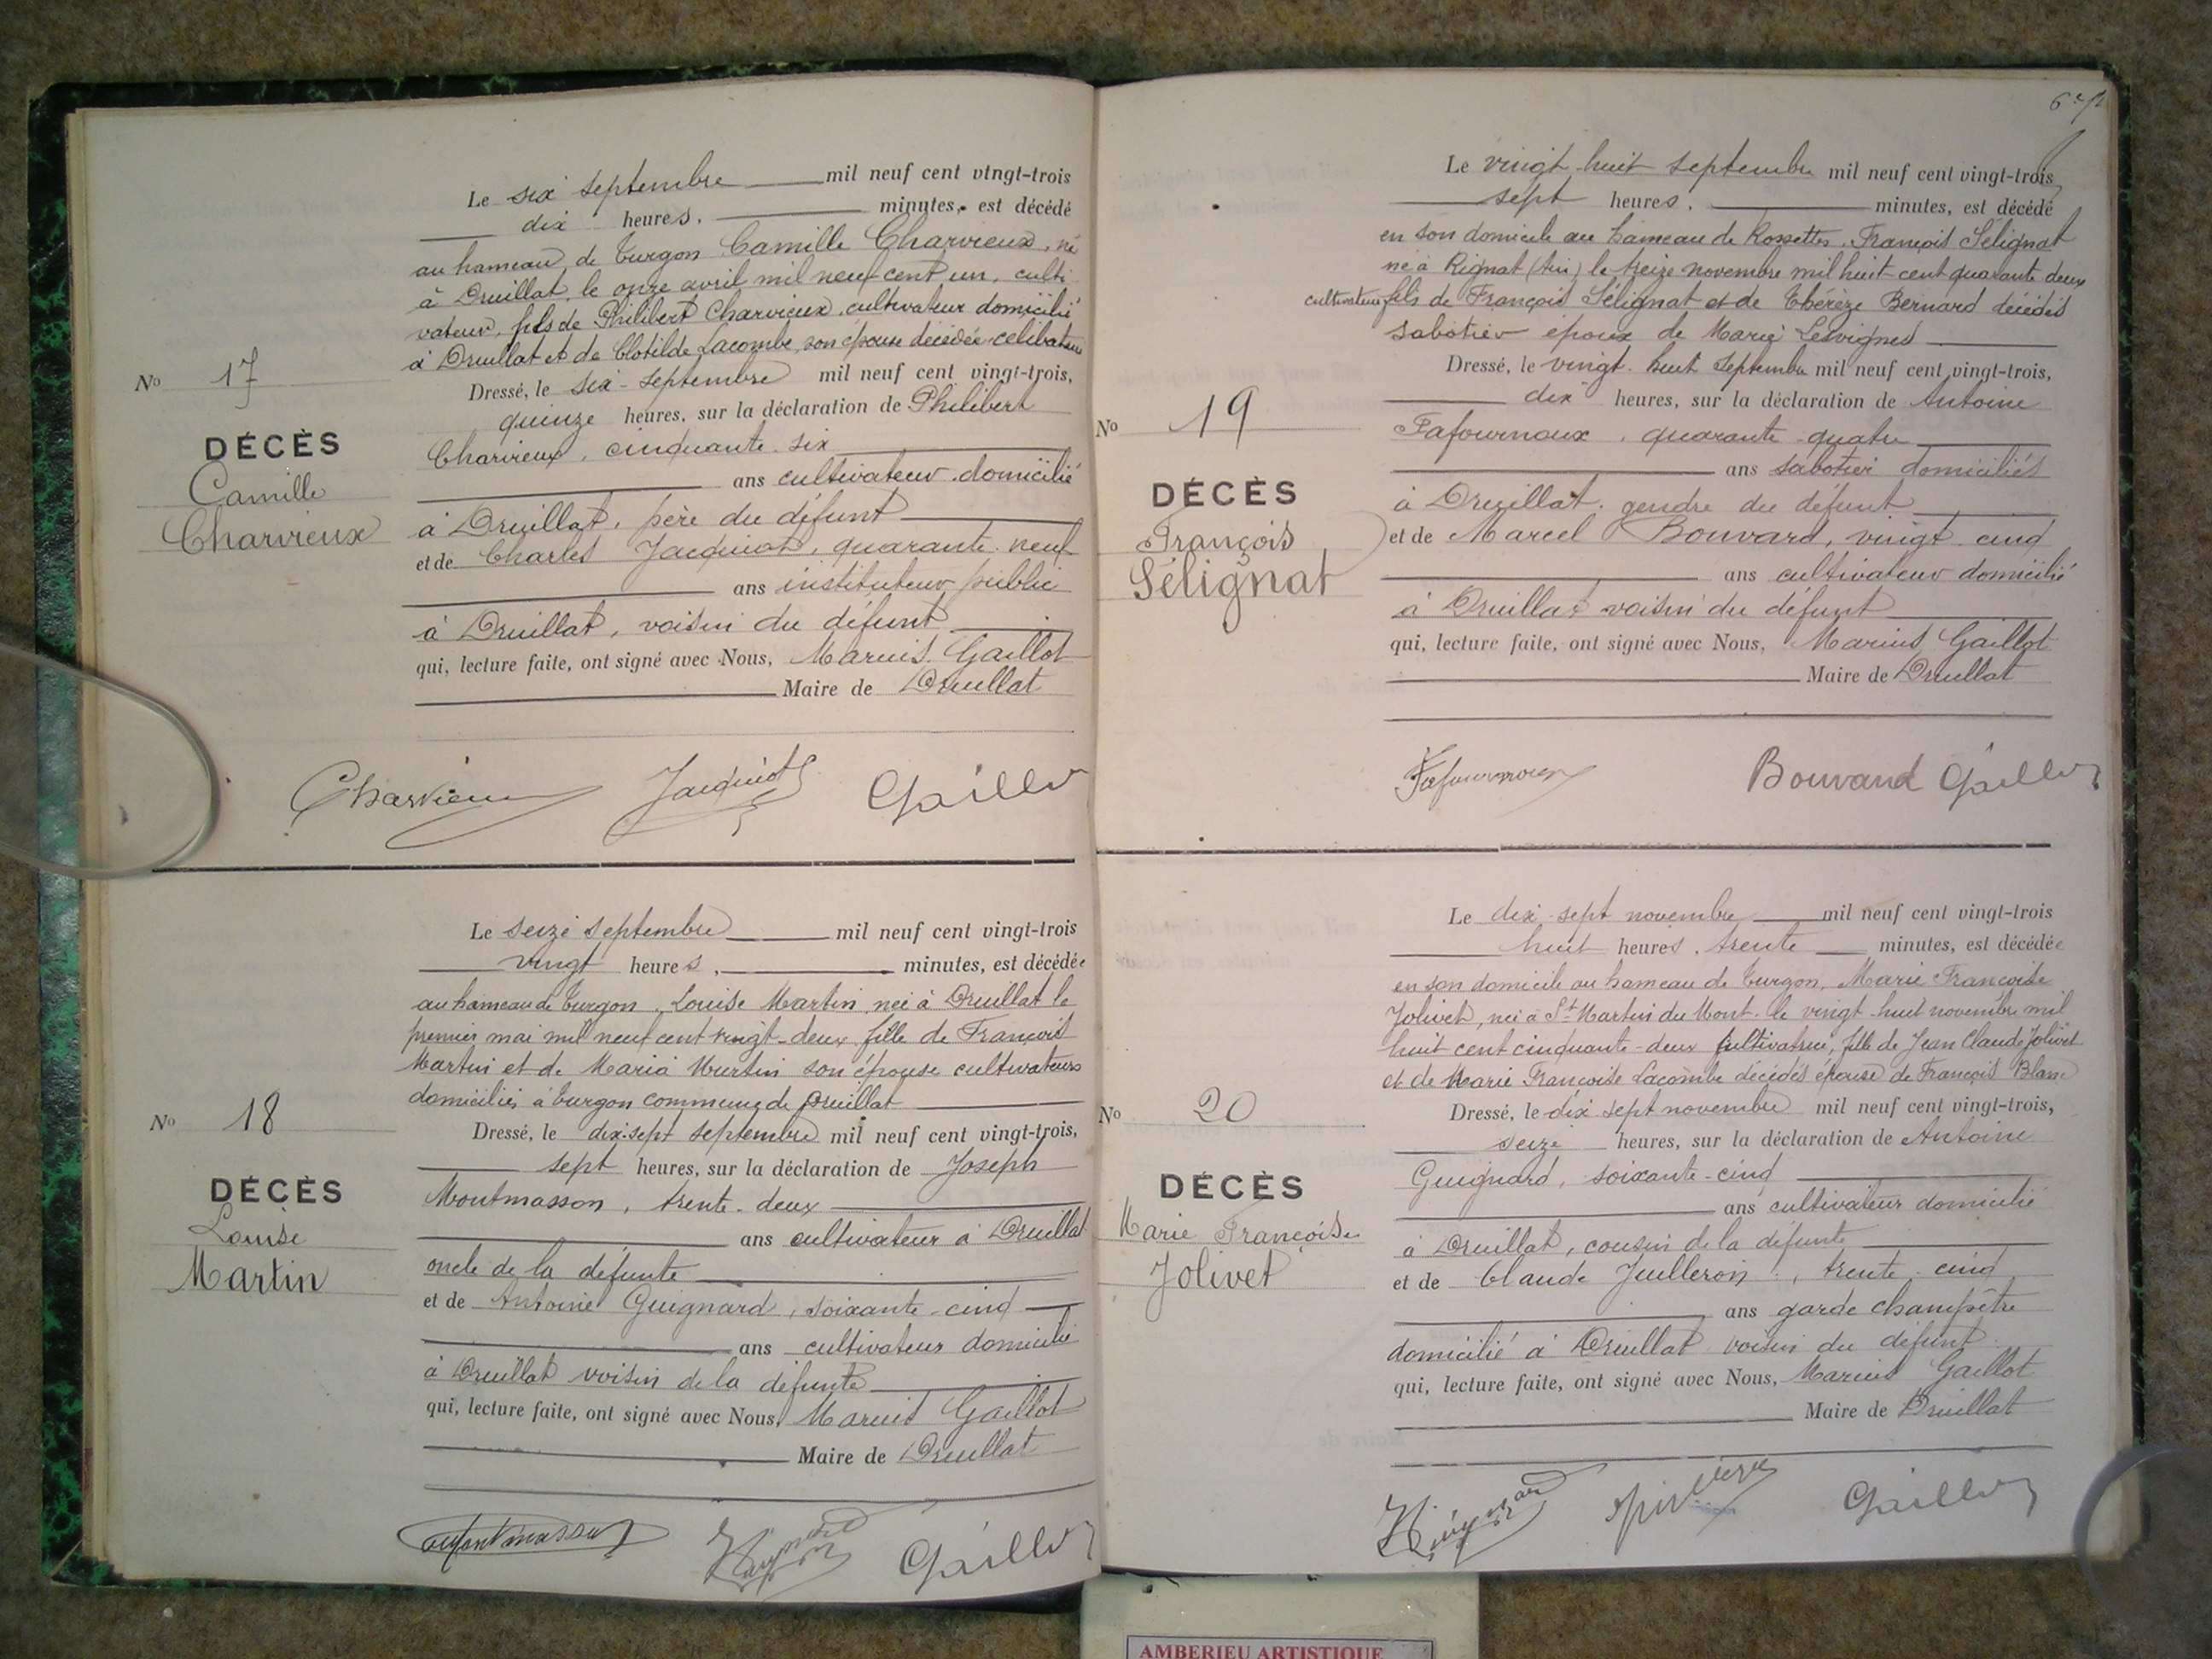 Le six septembre mil neuf cent vingt-trois
dix heures, minutes, est décédé
au hameau de Turgon Camille Charvieux, né
à Druillat, le onze avril mil neuf cent un, culti
vateur, fils de Philibert Charvieux, cultivateur domicilié
à Druillat et de Clotilde Lacombe, son épouse décédée célibataire
No 17
DÉCÈS
Camille
Charvieux
Dressé, le six septembre mil neuf cent vingt-trois,
quinze heures, sur la déclaration de Philibert
Charvieux, cinquante-six
ans cultivateur domicilié
à Druillat, père du défunt
et de Charles Jacquiot, quarante-neuf
ans instituteur public
à Druillat, voisin du défunt
qui, lecture faite, ont signé avec Nous, Marius Gaillot
Maire de Druillat
Charvieux Jacquiot Gaillot
Le seize septembre mil neuf cent vingt-trois
vingt heures, minutes, est décédée
au hameau de Turgon, Louise Martin, née à Druillat le
premier mai mil neuf cent vingt-deux fille de François
Martin et de Maria Murtin son épouse cultivateurs
domiciliés à Turgon commune de Druillat
No 18
DÉCÈS
Louise
Martin
Dressé, le dix-sept septembre mil neuf cent vingt-trois,
sept heures, sur la déclaration de Joseph
Montmasson, trente-deux
ans cultivateur à Druillat
oncle de la défunte
et de Antoine Guignard, soixante-cinq
ans cultivateur domicilié
à Druillat voisin de la défunte
qui, lecture faite, ont signé avec Nous, Marius Gaillot
Maire de Druillat
Montmasson Guignard Gaillot
Le vingt-huit septembre mil neuf cent vingt-trois,
sept heures, minutes, est décédé
en son domicile au hameau de Rossettes, François Sélignat
né à Rignat (Ain) le treize novembre mil huit cent quarante deux
cultivateur fils de François Sélignat et de Thérèze Bernard décédés
sabotier époux de Marie Lesvignes
No 19
DÉCÈS
François
Sélignat
Dressé, le vingt-huit septembre mil neuf cent vingt-trois,
dix heures, sur la déclaration de Antoine
Fafournoux, quarante-quatre
ans sabotier domiciliés
à Druillat, gendre du défunt
et de Marcel Bouvard, vingt-cinq
ans cultivateur domicilié
à Druillat voisin du défunt
qui, lecture faite, ont signé avec Nous, Marius Gaillot
Maire de Druillat
Fafournoux Bouvard Gaillot
Le dix-sept novembre mil neuf cent vingt-trois
huit heures, trente minutes, est décédée
en son domicile au hameau de Turgon, Marie Françoise
Jolivet, née à St Martin du Mont le vingt-huit novembre mil
huit cent cinquante-deux cultivatrice, fille de Jean Claude Jolivet
et de Marie Françoise Lacombe décédés épouse de François Blanc
No 20
DÉCÈS
Marie Françoise
Jolivet
Dressé, le dix-sept novembre mil neuf cent vingt-trois,
seize heures, sur la déclaration de Antoine
Guignard, soixante-cinq
ans cultivateur domicilié
à Druillat, cousin de la défunte
et de Claude Juilleron, trente-cinq
ans garde champêtre
domicilié à Druillat voisin du défunt
qui, lecture faite, ont signé avec Nous, Marius Gaillot
Maire de Druillat
Guignard Gaillot
AMBERIEU ARTISTIQUE